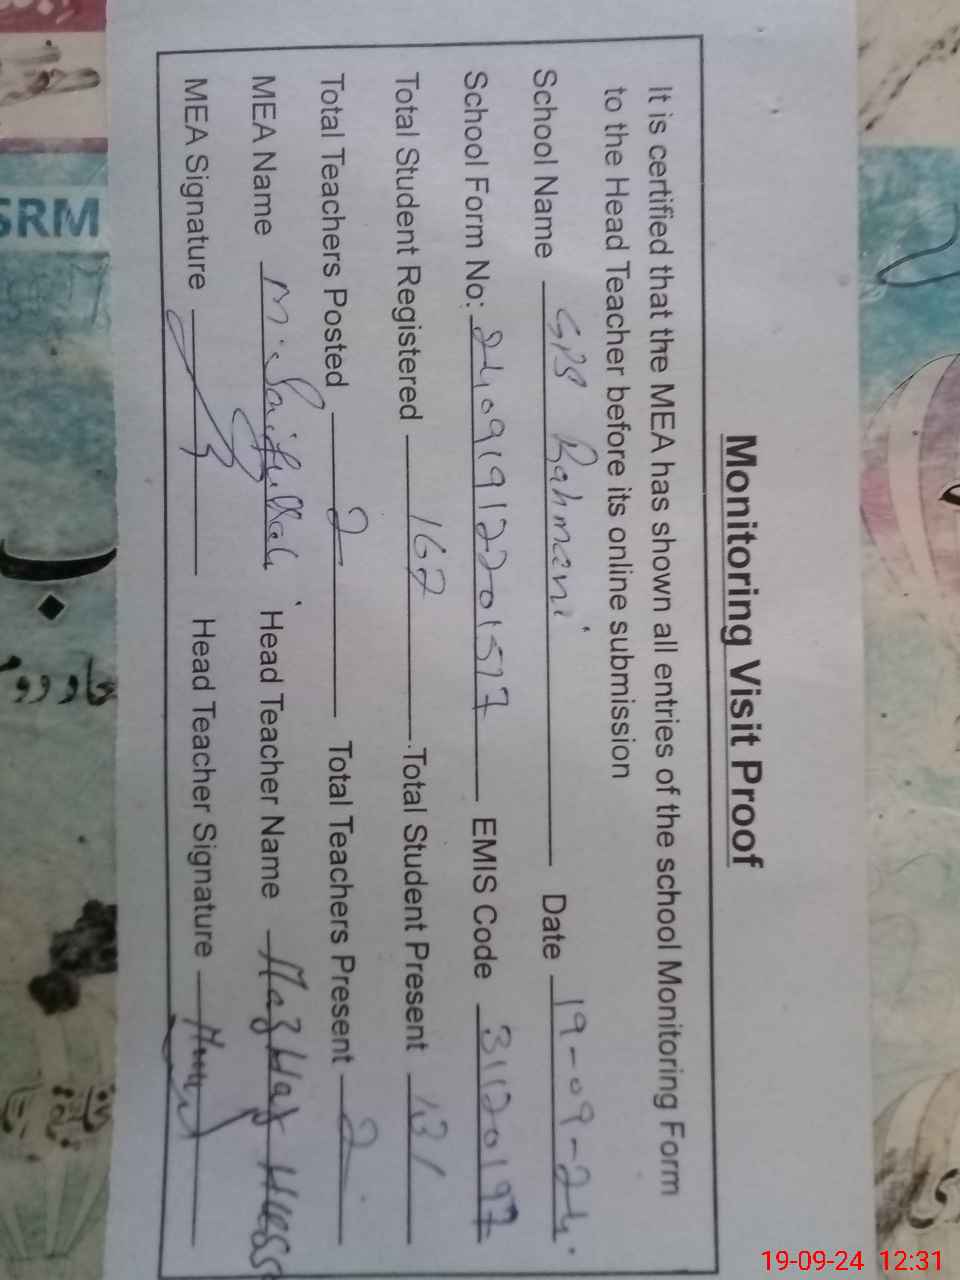 Monitoring Visit Proof
It is certified that the MEA has shown all entries of the school Monitoring Form
to the Head Teacher before its online submission
School Name GPS Rahmani Date 19-09-24
School Form No: 24091912201577 EMIS Code 31120197
Total Student Registered 162 Total Student Present 131
Total Teachers Posted 2 Total Teachers Present 2
MEA Name M. Saifullah Head Teacher Name Mazhar
MEA Signature Head Teacher Signature
SRM
19-09-24 12:31